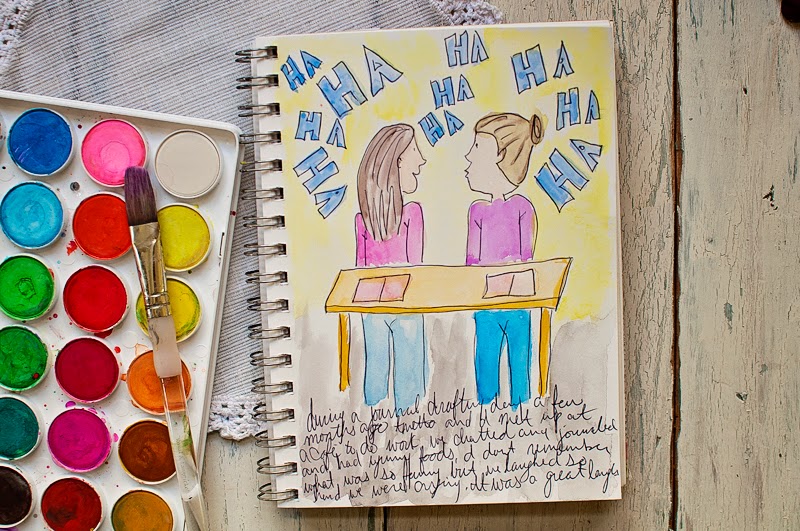 HA HA HA
HA HA
HA HA HA
HA HA
HA
during a journal crafting day a few
months ago and I met up at
a cafe to do work, we chatted and journaled
and had yummy foods. I dont remember
what was so funny but we laughed so
hard we were crying. It was a great laugh